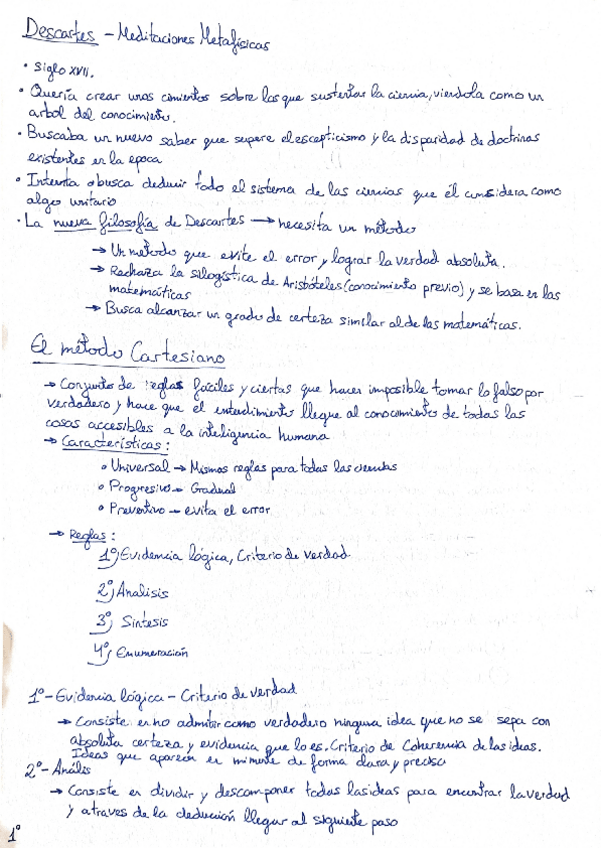 Descartes - Meditaciones Metafísicas
• Siglo XVII.
• Quería crear unos cimientos sobre los que sustentar la ciencia, viendola como un
arbol del conocimiento.
• Buscaba un nuevo saber que supere el escepticismo y la disparidad de doctrinas
existentes en la epoca
• Intenta o busca deducir todo el sistema de las ciencias que él considera como
algo unitario
• La nueva filosofía de Descartes → necesita un método
→ Un metodo que evite el error y lograr la verdad absoluta.
→ Rechaza la silogística de Aristóteles (conocimiento previo) y se basa en las
matemáticas
→ Busca alcanzar un grado de certeza similar al de las matemáticas.
El método Cartesiano
→ Conjunto de reglas fáciles y ciertas que hacen imposible tomar lo falso por
verdadero y hace que el entendimiento llegue al conocimiento de todas las
cosas accesibles a la inteligencia humana
→ Características:
• Universal → Mismas reglas para todas las ciencias
• Progresivo → Gradual
• Preventivo → evita el error
→ Reglas:
1º) Evidencia lógica, Criterio de verdad
2º) Analisis
3º) Sintesis
4º) Enumeración
1º - Evidencia lógica - Criterio de verdad
→ Consiste en no admitir como verdadero ninguna idea que no se sepa con
absoluta certeza y evidencia que lo es. Criterio de Coherencia de las ideas.
Ideas que aparecen en mi mente de forma clara y precisa
2º - Anális
→ Consiste en dividir y descomponer todas las ideas para encontrar la verdad
y atraves de la deducción llegar al siguiente paso
1º